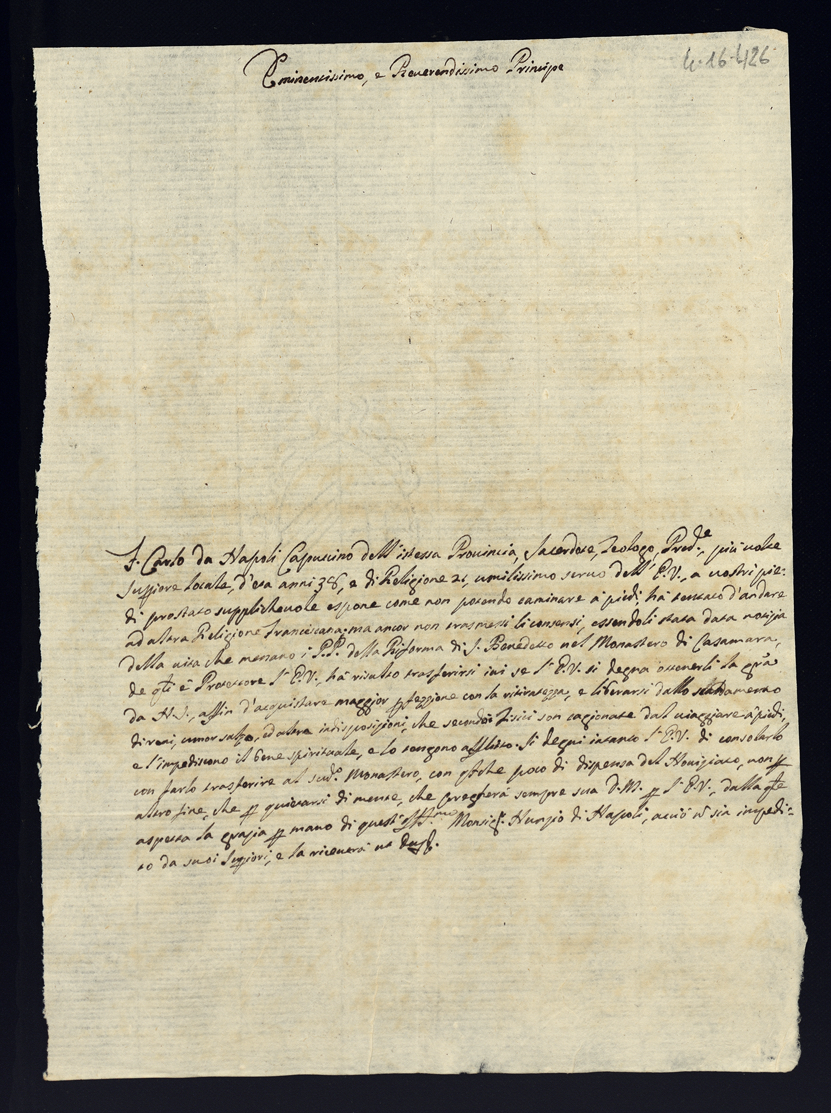 4.16.426
Eminentissimo, e Reuerendissimo Principe
F. Carlo da Napoli Capuccino dell'istessa Prouincia, Sacerdote, Teologo, Pred.e, più uolte
Supp.riore locale, d'età anni 38, e di Religione 21, umilissimo seruo dell'E.V., a uostri pie-
di prostato suppliheuole espone come non potendo caminare a' piedi, hà tentato d'andare
ad altra Religione Franciscana; ma ancor non trasmessi li consensi, essendoli stata data notizia
della uita che menano i P.P. della Riforma di S. Benedetto nel Monastero di Casamara,
de q.li è Protettore l'E.V., hà risulto trasferirsi iui se l'E.V. si degna ottenerli la gr.a
da N.S., affin d'acquistare maggior perfezzione con la ritiratezza, e liberarsi dallo
di reni, umor salzo, ed altre indisposizioni, che secondo i Fisici son cagionate dal uiaggiare a' piedi,
e l'impediscono il bene spirituale, e lo tengono afflitto. Si degni intanto l'E.V. di consolarlo
con farlo trasferire al sud.o Monastero, con q.che poco di dispensa del Nouiziato, non p
altro fine, che p quietarsi di mente, che pregherà sempre sua D.M. p l'E.V., dalla q.le
aspetta la grazia p mano di quest'Ill.mo Monsig.r Nunzio di Napoli, acciò n sia impedi-
to da suoi Sup.riori, e la riceuerà ut